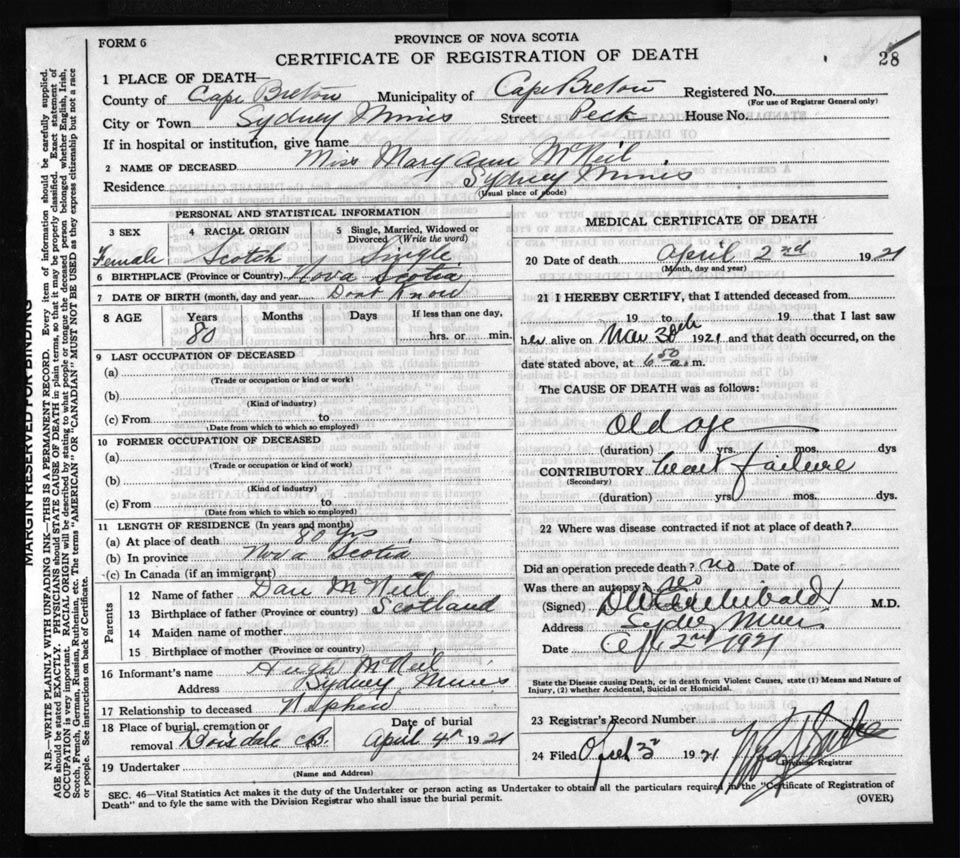 FORM 6
PROVINCE OF NOVA SCOTIA
CERTIFICATE OF REGISTRATION OF DEATH
28
1 PLACE OF DEATH—
County of Cape Breton Municipality of Cape Breton Registered No.
(For use of Registrar General only)
City or Town Sydney Mines Street Peck House No.
If in hospital or institution, give name
2 NAME OF DECEASED Miss Mary Ann McNeil
Residence Sydney Mines
(Usual place of abode)
PERSONAL AND STATISTICAL INFORMATION
3 SEX 4 RACIAL ORIGIN 5 Single, Married, Widowed or Divorced (Write the word)
Female Scotch Single
6 BIRTHPLACE (Province or Country) Nova Scotia
7 DATE OF BIRTH (month, day and year) Dont Know
8 AGE Years Months Days If less than one day,
80 hrs. or min.
9 LAST OCCUPATION OF DECEASED
(a)
(Trade or occupation or kind or work)
(b)
(Kind of industry)
(c) From to
(Date from which to which so employed)
10 FORMER OCCUPATION OF DECEASED
(a)
(Trade or occupation or kind of work)
(b)
(Kind of industry)
(c) From to
(Date from which to which so employed)
11 LENGTH OF RESIDENCE (In years and months)
(a) At place of death 80 yrs
(b) In province Nova Scotia
(c) In Canada (if an immigrant)
Parents
12 Name of father Dan McNeil
13 Birthplace of father (Province or country) Scotland
14 Maiden name of mother
15 Birthplace of mother (Province or country)
16 Informant's name Hugh McNeil
Address Sydney Mines
17 Relationship to deceased Nephew
18 Place of burial, cremation or Date of burial
removal Boisdale CB. April 4th 1921
19 Undertaker
(Name and Address)
MEDICAL CERTIFICATE OF DEATH
20 Date of death April 2nd 1921
(Month, day and year)
21 I HEREBY CERTIFY, that I attended deceased from
19 to 19 that I last saw
her alive on Mar 30th 1921 and that death occurred, on the
date stated above, at 6 50 a.m.
The CAUSE OF DEATH was as follows:
Old age
(duration) yrs. mos. dys
CONTRIBUTORY heart failure
(Secondary)
(duration) yrs. mos. dys.
22 Where was disease contracted if not at place of death?
Did an operation precede death? no Date of
Was there an autopsy? no
(Signed) Archibald M.D.
Address Sydney Mines
Date Apl 2nd 1921
State the Disease causing Death, or in death from Violent Causes, state (1) Means and Nature of
Injury, (2) whether Accidental, Suicidal or Homicidal.
23 Registrar's Record Number
24 Filed April 3 1921
Division Registrar
SEC. 46—Vital Statistics Act makes it the duty of the Undertaker or person acting as Undertaker to obtain all the particulars required in the "Certificate of Registration of
Death" and to fyle the same with the Division Registrar who shall issue the burial permit.
(OVER)
MARGIN RESERVED FOR BINDING
N.B.—WRITE PLAINLY WITH UNFADING INK—THIS IS A PERMANENT RECORD. Every item of information should be carefully supplied.
AGE should be stated EXACTLY. PHYSICIANS should STATE CAUSE OF DEATH in plain terms, so that it may be properly classified. Exact statement of
OCCUPATION is very important. RACIAL ORIGIN will be described by stating to what people or tongue the deceased person belonged whether English, Irish,
Scotch, French, German, Russian, Ruthenian, etc. The terms "AMERICAN" OR "CANADIAN" MUST NOT BE USED as they express citizenship but not a race
or people. See instructions on back of Certificate.